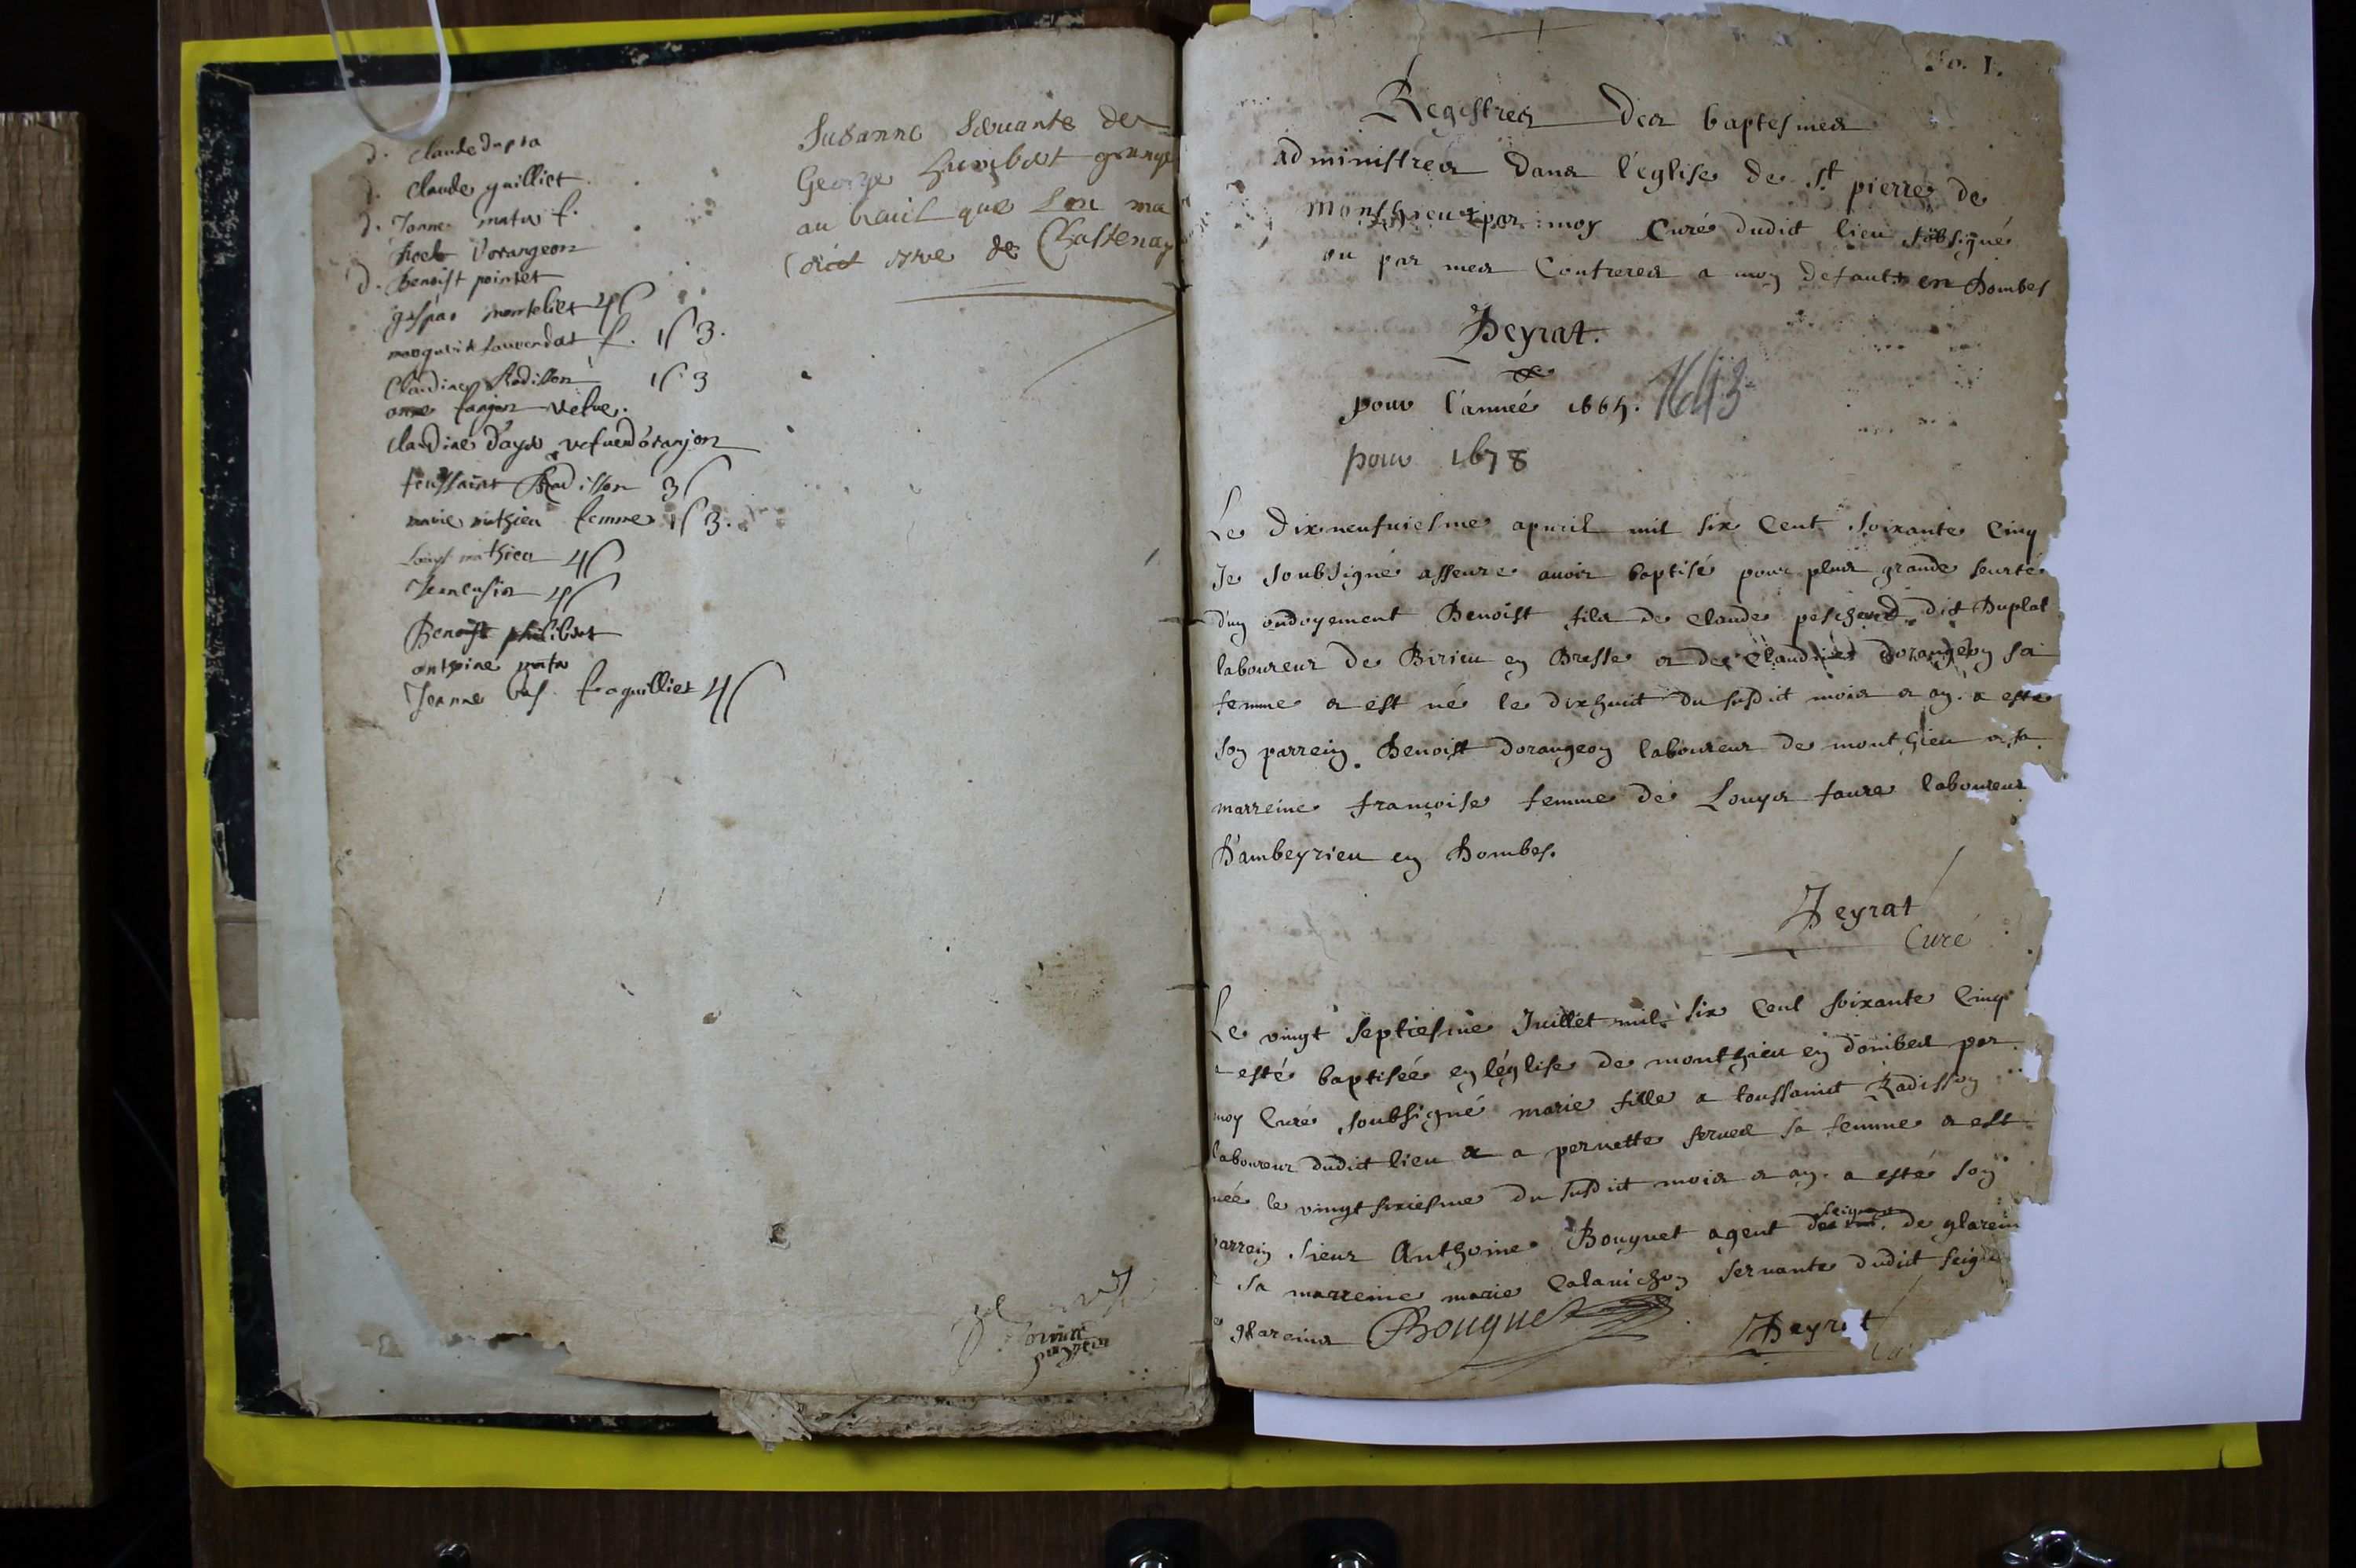 d. Claude dupra
d. Claude guilliet
d. Janne mata f.
dorangeon
d. Benoist pointet
gaspar montelier 4ſ
sauvendat f. 1ſ 3.
Claudine Radisson 1ſ 3
anne fanjon vefve.
claudine d'aye vefve doranjon
toussaint Radisson 3ſ
marie mathieu femme 1ſ 3.
Louys mathieu 4ſ
4ſ
Benoist philibert
anthoine mata
Jeanne bas. guillier 4ſ
Susanne servante de
George humbert grange
au que lon ma
dict estre de Chastenay
fo. 1.
Registres des baptesmes
administres dans l'eglise de St pierre de
Monthieux par moy Curé dudit lieu sobsigné
ou par mes Confreres a mon defaut en Dombes
Deyrat.
pour l'année 1665. 1643
pour 1678
Le dixneufviesme apvril mil six Cent soixante Cinq
Je soubsigné asseure avoir baptisé pour plus grande seurté
d'un ondoyement Benoist fils de Claude peschard dit Duplat
laboureur de Birieu en Bresse & de Claudine dorangeon sa
femme & est né le dixhuit du susdit mois & an. a esté
son parrein Benoist dorangeon laboureur de monthieu & sa
marreine françoise femme de Louys faure laboureur
D'ambeyrieu en Dombes.
Deyrat
Curé
Le vingt septiesme Juillet mil six Cent soixante Cinq
a esté baptisée en léglise de monthieu en dombes par
moy Curé soubsigné marie fille a toussainct Radisson
laboureur dudict lieu & a pernette servel sa femme & est
née le vingtsixiesme du susdit mois & an. a esté son
parrein sieur Anthoine Bouquet agent seigneur de glarein
& sa marreine marie Calanichon servante dudit seig
de glareins Bouquet Deyrat